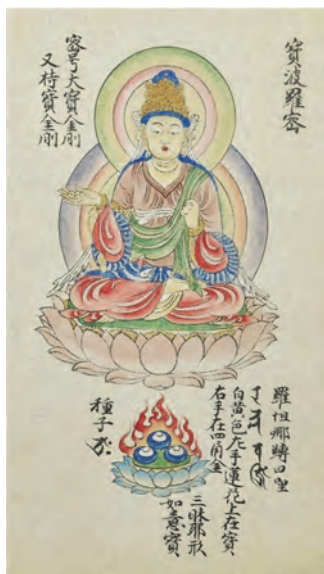 寶波羅蜜
密号大寶金剛
又持寶金剛
羅怛那嚩日哩
白黃色左手蓮花上在寶
右手在四角金
三昧耶形
如意寶
種子